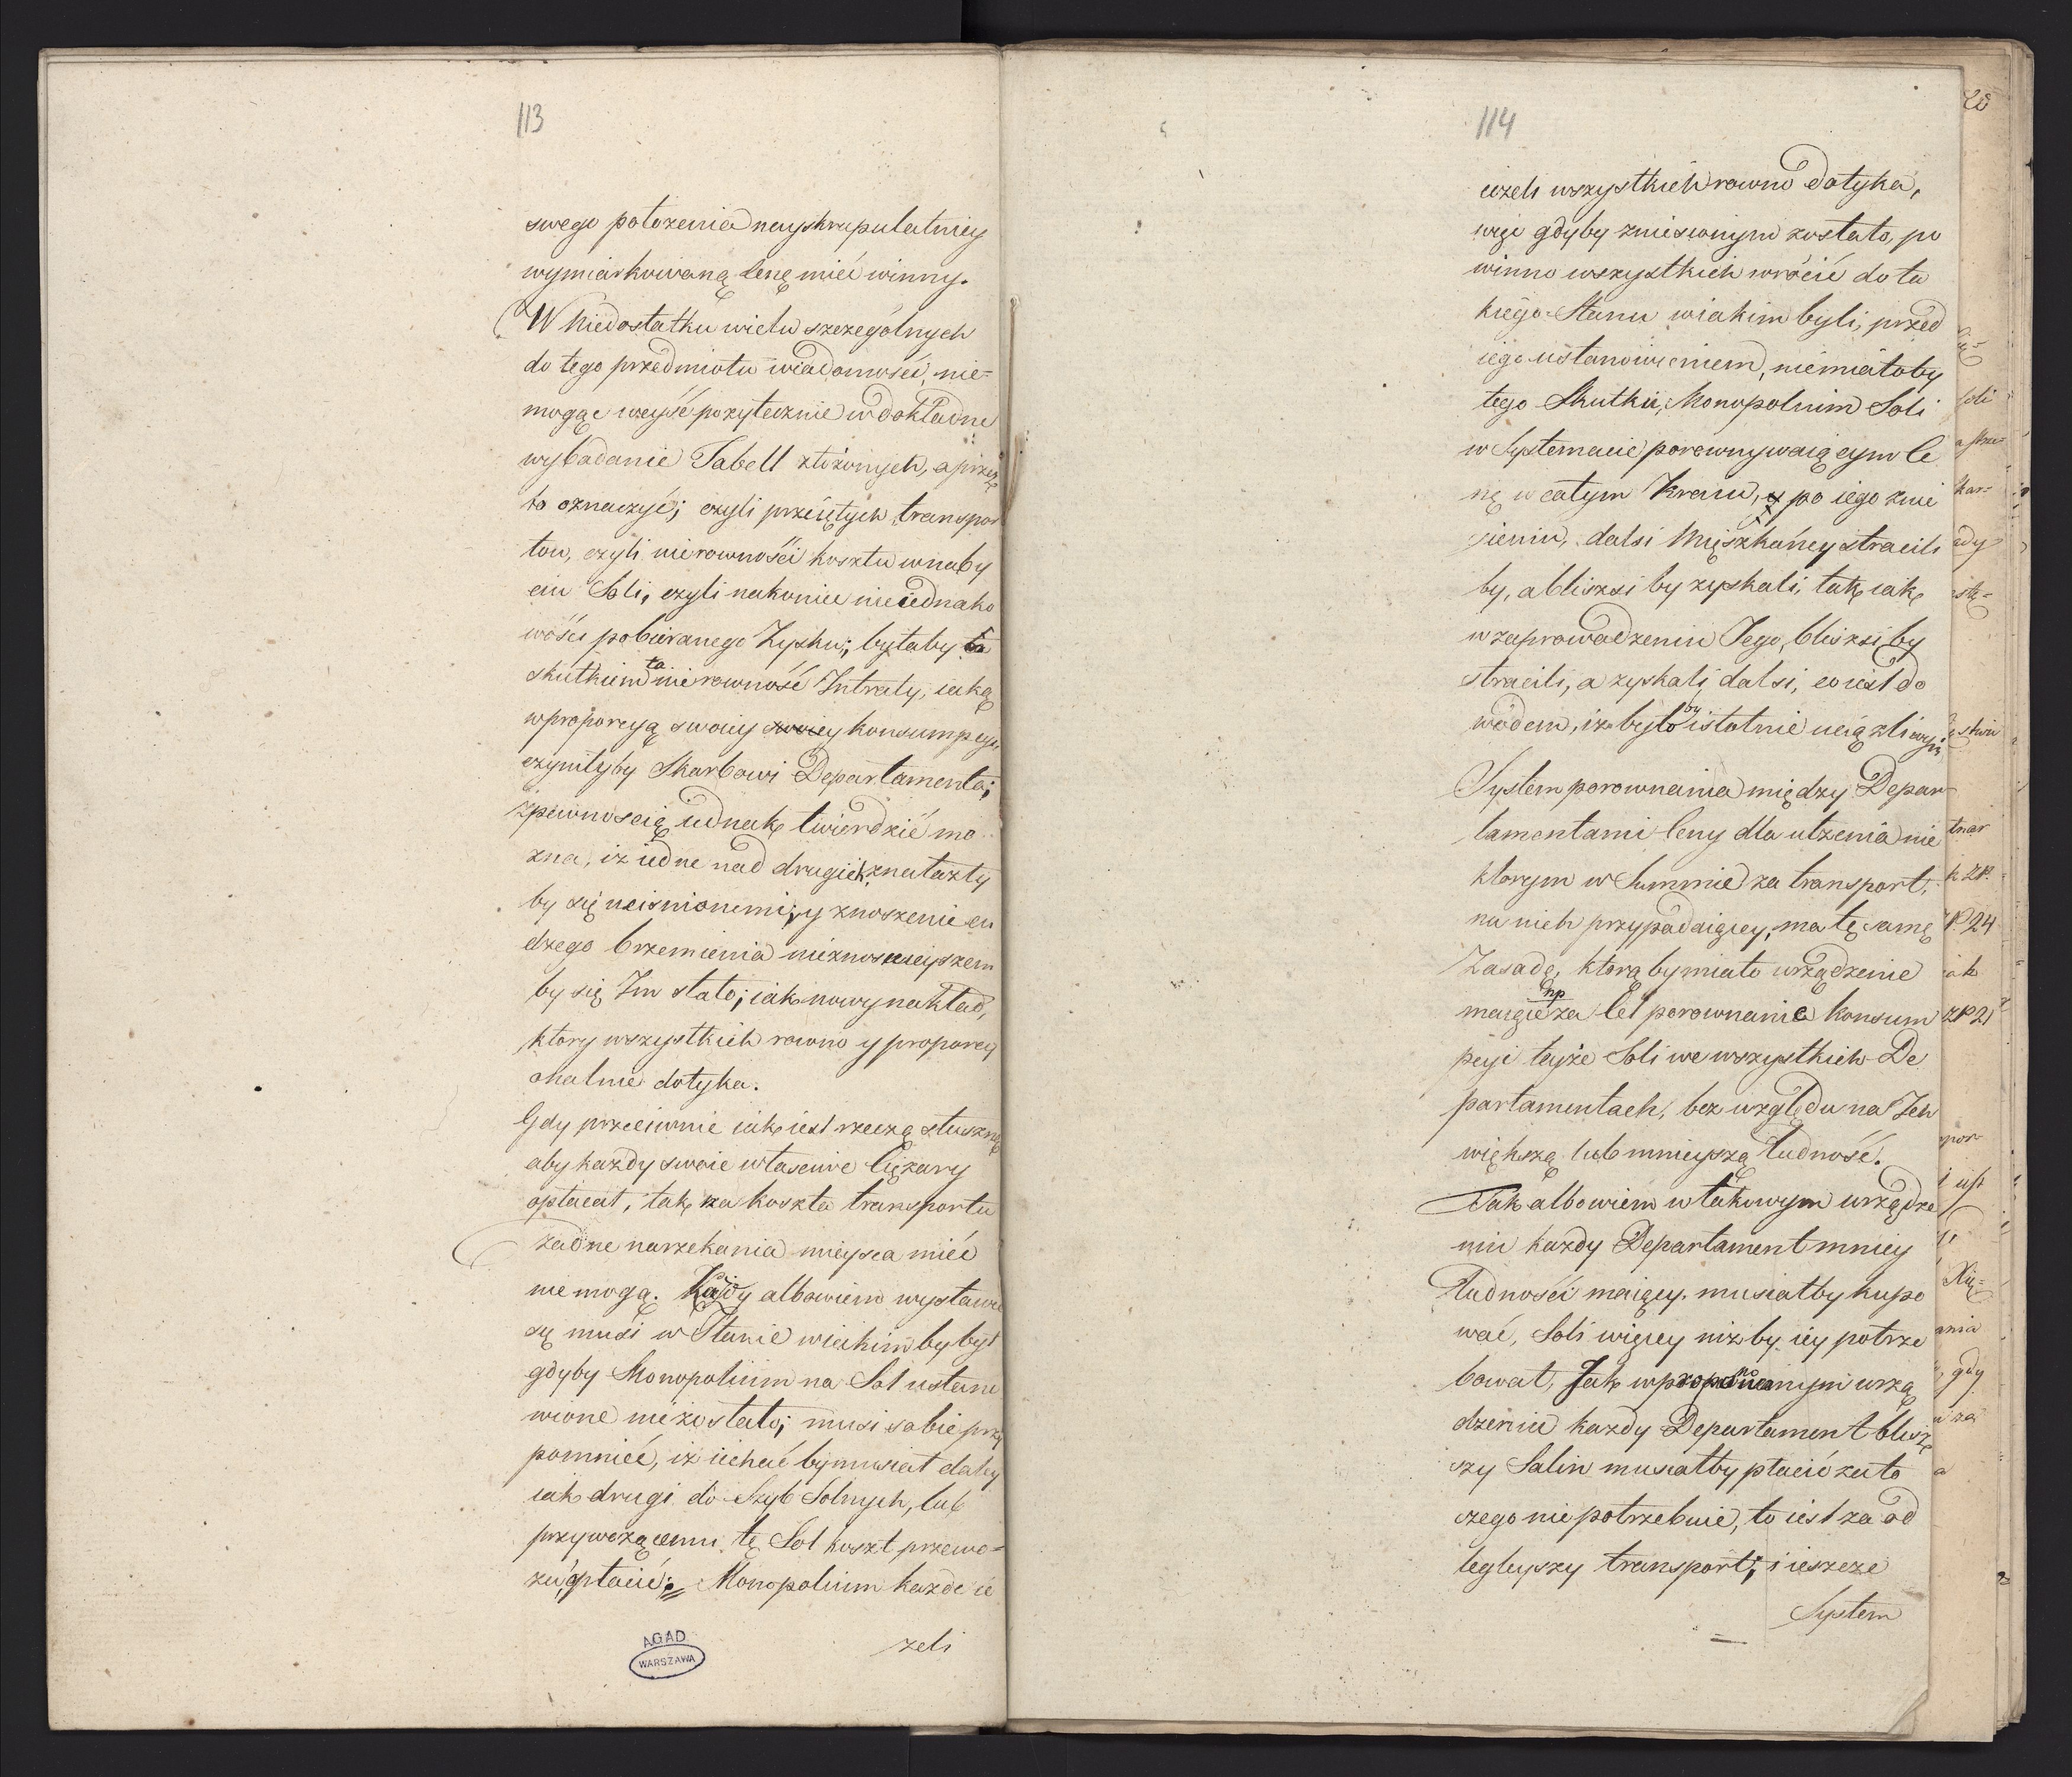 113
swego położenia nayskrupulatniey
wymiarkowaną Cenę mieć winny.
W Niedostatku wielu szczególnych
do tego przedmiotu wiadomości, nie=
mogąc weyść pożytecznie w dokładne
wybadanie Tabell złożonych, a przez
to oznaczyć; czyli przeiętych transpor
tow, czyli nierowności kosztu w naby
ciu Soli, czyli nakoniec nieiednako
wości pobieranego Zysku; byłaby
skutkiem ta nierowność Intraty, iaką
w proporcyą swoiey swoiey konsumpcyi
czyniłyby Skarbowi Departamenta;
z pewnoscią iednak twierdzić mo
żna, iż iedne nad drugiek znalazły
by się uciśnionemi, y znoszenie cu
dzego brzemienia nieznosnieyszem
by się Im stało; iak nowy nakład,
ktory wszystkich rowno y proporcy
onalnie dotyka.
Gdy przeciwnie iak iest rzeczą słuszną
aby każdy swoie własciwe Ciężary
opłacał, tak za koszta transportu
żadne narzekania mieysca mieć
nie mogą. Każdy albowiem wystawić
się musi w Stanie w iakim by był
gdyby Monopolium na Sol ustano
wione nie zostało; musi sobie przy
pomnieć, iż iechać by musiał daley
iak drugi do Szyb Solnych, lub
przywożącemu tę Sol koszt przewo=
zu opłacić; Monopolium każde ie
żeli
AGAD
WARSZAWA
114
ieżeli wszystkich rowno dotyka,
więc gdyby zniesionym zostało, po
winno wszystkich wrócić do ta
kiego Stanu w iakim byli, przed
iego ustanowieniem, niemiałoby
tego Skutku, Monopolium Soli
w Systemacie porownywaiącym Ce
nę w całym Kraiu, po iego znie
sieniu, dalsi Mięszkańcy stracili
by, a bliżsi by zyskali, tak iak
w zaprowadzeniu Jego, bliżsi by
stracili, a zyskali dalsi, co iest do
wodem, iż byłoby istotnie uciążliwym
System porownania między Depar
tamentami Ceny dla ulżenia nie
ktorym w Summie za transport,
na nich przypadaiącey, ma tę samę
Zasadę, ktorą by miało urządzenie
maiące np za Cel porownanie konsum
pcyi teyże Soli we wszystkich De
partamentach, bez względu na Ich
większą lub mnieyszą ludność.
Jak albowiem w takowym urządze
niu każdy Departament mniey
ludności maiący, musiałby kupo
wać, Soli więcey niżby iey potrze
bował, Tak w proponowanym urzą
dzeniu każdy Departament bliż
szy Salin musiałby płacić za to
czego nie potrzebuie, to iest za od
legleyszy transport; i ieszcze
System